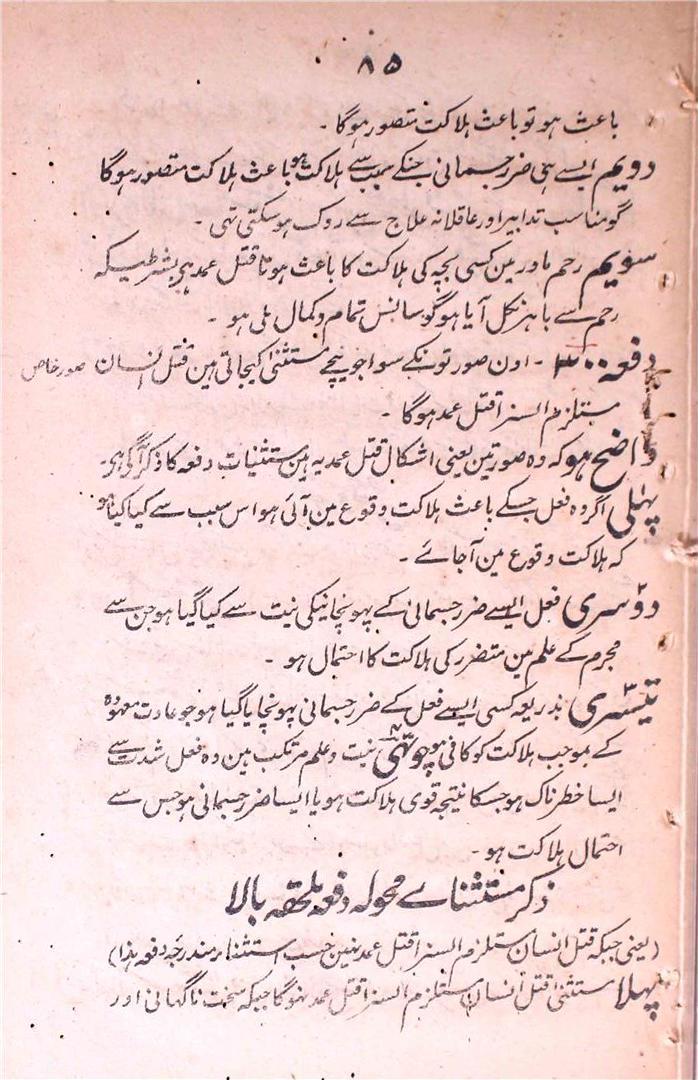 ۸۵
باعث ہو تو باعث ہلاکت متصور ہوگا ۔
دویم ایسے ہی ضرر جسمانی جنکے سبب سے ہلاکت ہو باعث ہلاکت متصور ہوگا
گو مناسب تدابیر اور عاقلانہ علاج سے روک ہو سکتی تہی ۔
سویم رحم مادر مین کسی بچہ کی ہلاکت کا باعث ہونا قتل عمد ہی بشرطیکہ
رحم سے باہر نکل آیا ہو گو سانس تمام و کمال لی ہو ۔
دفعہ ۳۰۰ ۔ اون صورتونکے سوا جو نیچے مستثنیٰ کیجاتی ہین قتل انسان صور خاص
مستلزم السزا قتل عمد ہوگا ۔
واضح ہو کہ وہ صورتین یعنی اشکال قتل عمد یہ ہین مستثنیات دفعہ کا ذکر آگی ہی ۔
پہلی اگر وہ فعل جسکے باعث ہلاکت وقوع مین آئی ہو اس سبب سے کیا گیا ہو
کہ ہلاکت وقوع مین آجائے ۔
دوسری فعل ایسے ضرر جسمانی کے پہونچانیکی نیت سے کیا گیا ہو جن سے
مجرم کے علم مین متضرر کی ہلاکت کا احتمال ہو ۔
تیسری بذریعہ کسی ایسے فعل کے ضرر جسمانی پہونچایا گیا ہو جو عادت معہودہ
کے بموجب ہلاکت کو کافی ہو چوتہی نیت و علم مرتکب مین وہ فعل شدت سے
ایسا خطرناک ہو جسکا نتیجہ قوی ہلاکت ہو یا ایسا ضرر جسمانی ہو جس سے
احتمال ہلاکت ہو ۔
ذکر مستثنائے محولہ دفعہ ملحقہ بالا
(یعنی جبکہ قتل انسان مستلزم السزا قتل عمد نہین حسب استثناء مندرجہ دفعہ ہذا)
پہلا مستثنیٰ قتل انسان مستلزم السزا قتل عمد نہوگا جبکہ سخت ناگہانی اور